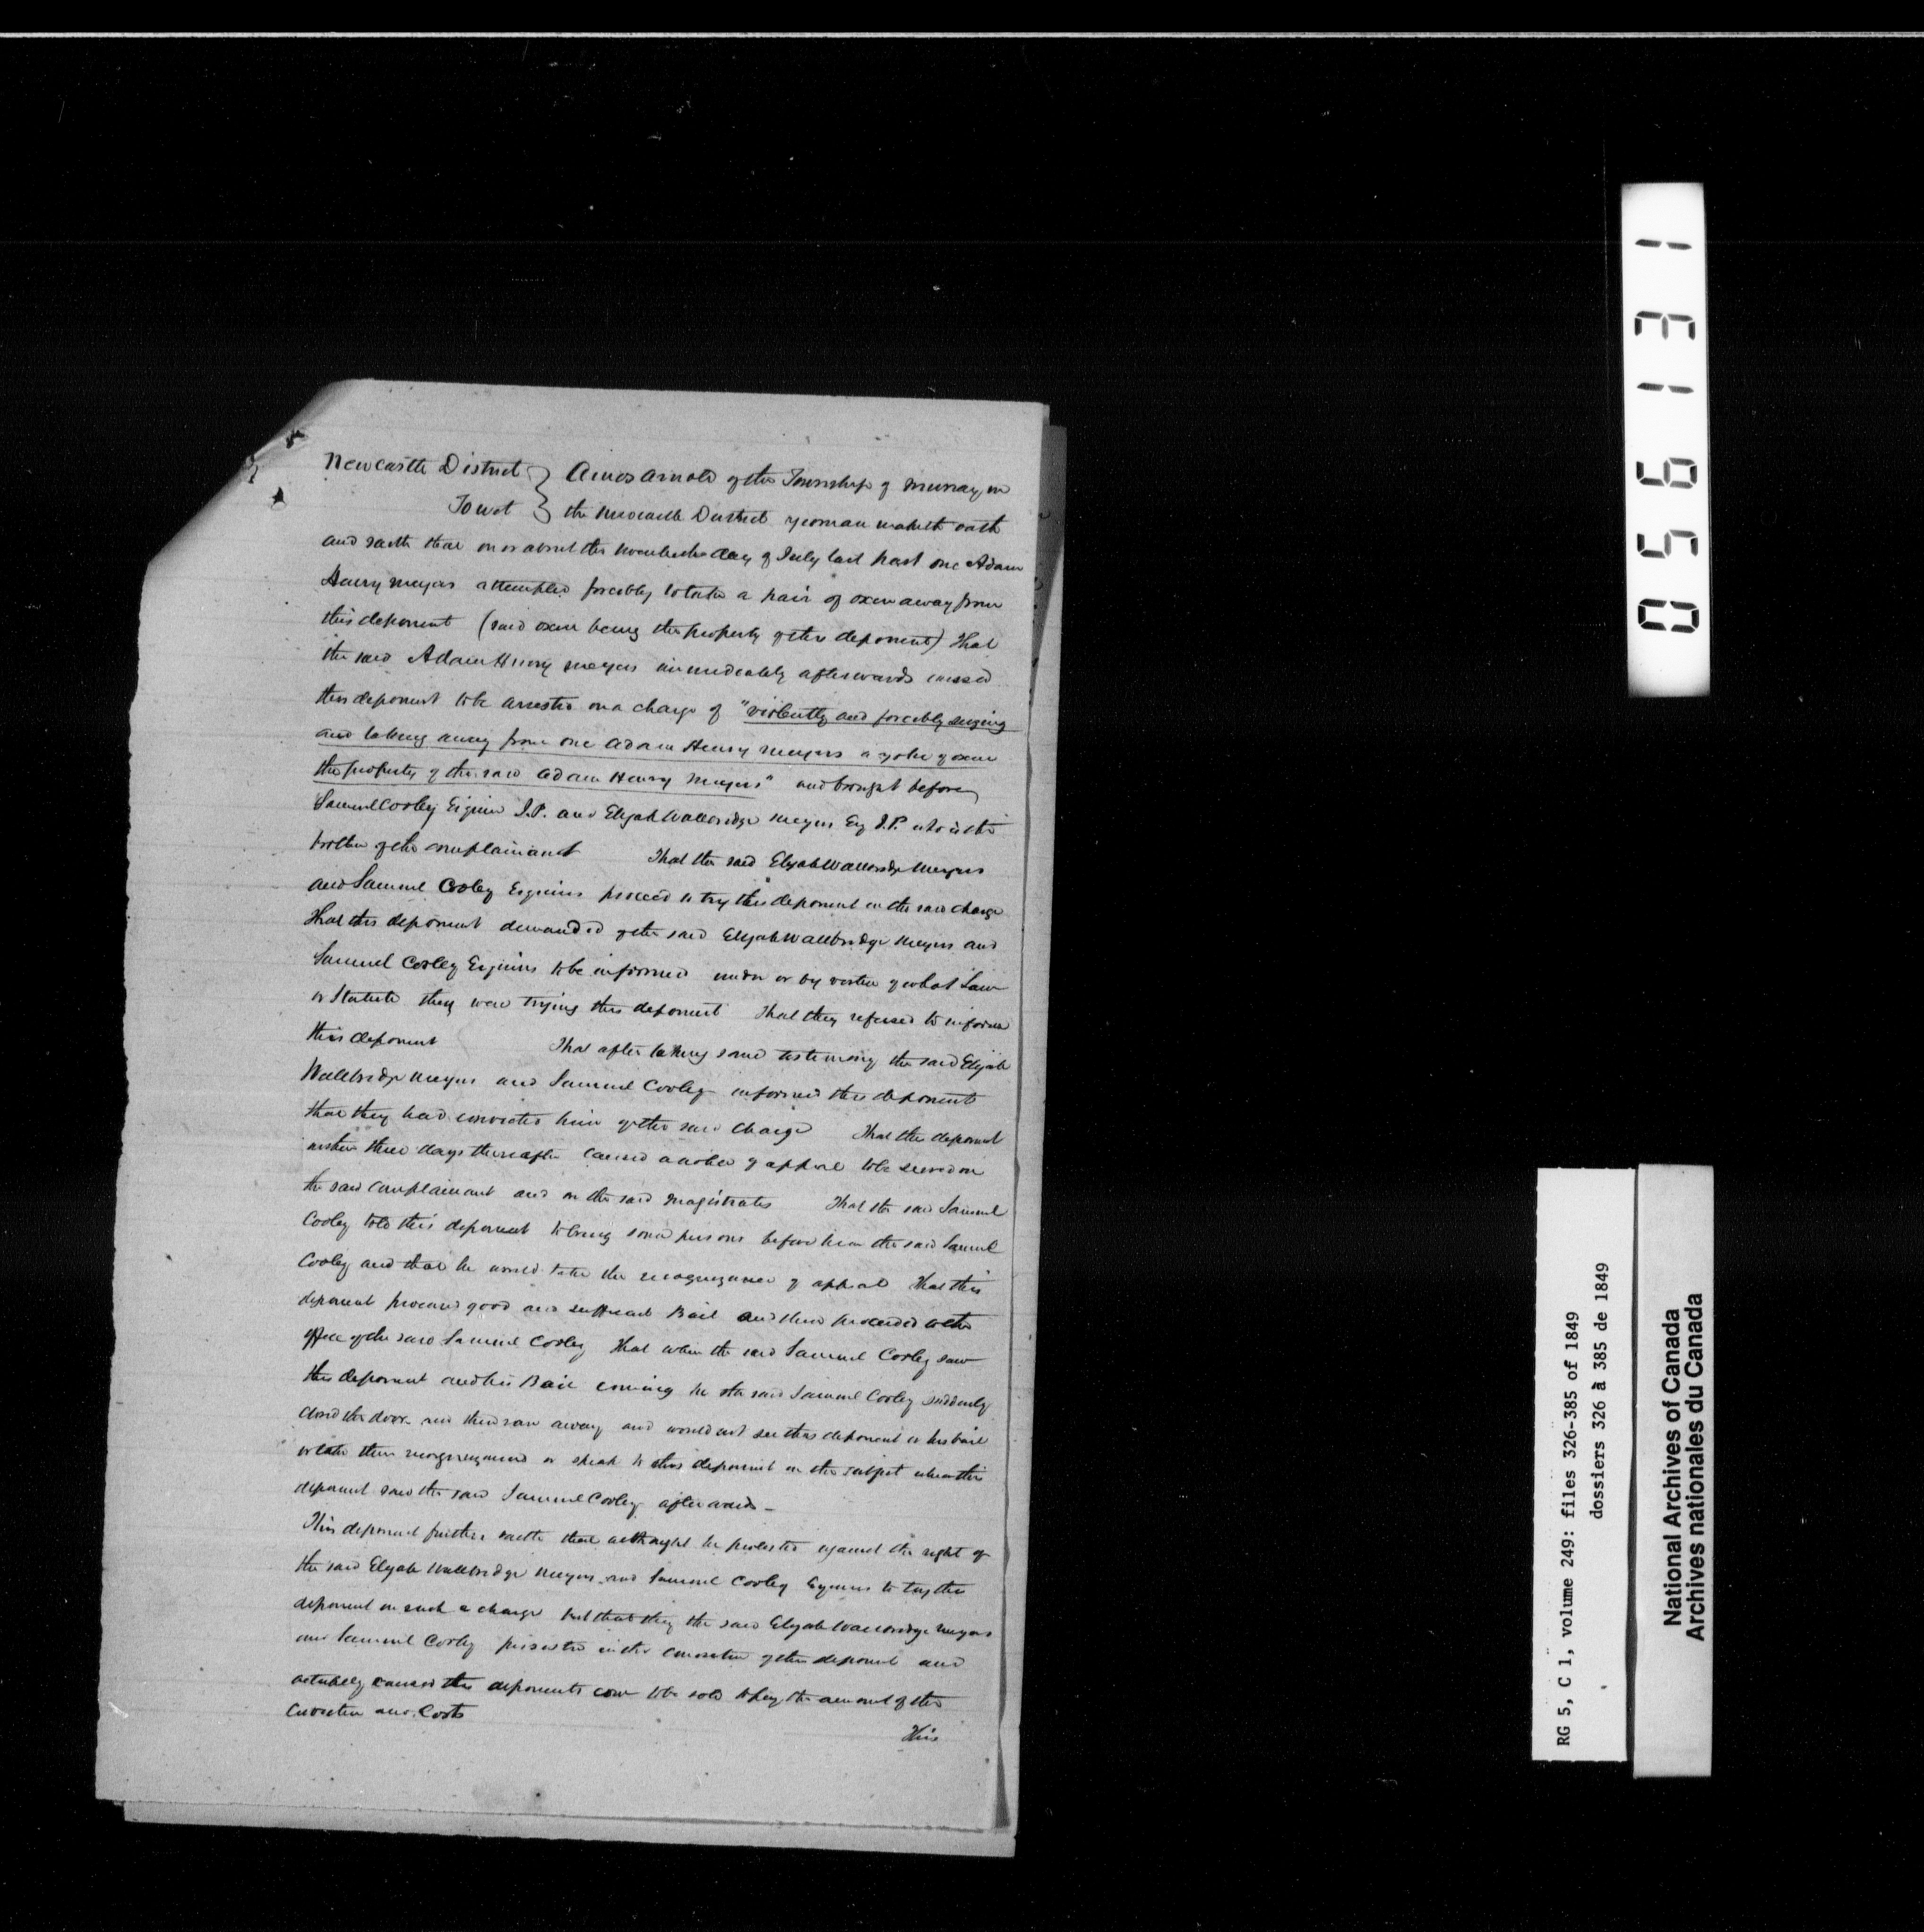 Newcastle District } Amos Arnold of the Township of Murray in
To wit } the Newcastle District yeoman maketh oath
and saith that on or about the day of July last past one Adam
Henry Meyers attempted forcibly to take a pair of oxen away from
this deponent (said oxen being the property of this deponent) That
the said Adam Henry Meyers immediately afterwards caused
this deponent to be arrested on a charge of "violently and forcibly seizing
and taking away from one Adam Henry Meyers a yoke of oxen
the property of the said Adam Henry Meyers" and brought before
Samuel Cooley Esquire J.P. and Elijah Wallbridge Meyers Esq J.P. who is the
brother of the complainant That the said Elijah Wallbridge Meyers
and Samuel Cooley Esquires proceed to try this deponent on the said charge
That this deponent demanded of the said Elijah Wallbridge Meyers and
Samuel Cooley Esquires to be informed under or by vertue of what Law
or Statute they were trying this deponent That they refused to inform
this deponent That after taking some testimony the said Elijah
Wallbridge Meyers and Samuel Cooley informed this deponent
that they had convicted him of the said charge That this deponent
within three days thereafter caused a notice of appeal to be served on
the said complainant and on the said Magistrates That the said Samuel
Cooley told this deponent to bring some persons before him the said Samuel
Cooley and that he would take the recognizance of appeal That this
deponent procured good and sufficient Bail and then proceeded to the
office of the said Samuel Cooley That when the said Samuel Cooley saw
this deponent and his Bail coming he the said Samuel Cooley suddenly
closed the door and then ran away and would not see this deponent or his bail
or take their recognizance or speak to this deponent on the subject when this
deponent saw the said Samuel Cooley afterwards -
This deponent further saith that although he protested against the right of
the said Elijah Wallbridge Meyers and Samuel Cooley Esquires to try this
deponent on such a charge but that they the said Elijah Wallbridge Meyers
and Samuel Cooley persisted in the conviction of this deponent and
actually caused this deponents cow to be sold to pay the amount of the
conviction and Costs
This
056131
RG 5, C 1, volume 249: files 326-385 of 1849
dossiers 326 à 385 de 1849
National Archives of Canada
Archives nationales du Canada